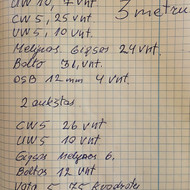 UW 10, 7 vnt.
3 metru
CW 5, 25 vnt
UW 5, 10 vnt.
Melynos Gipsas 24 vnt.
Balto 31, vnt.
OSB 12 mm 4 vnt.
2 aukštas.
CW 5 26 vnt
UW 5 10 vnt
Gipsas Melynas 6,
Baltas 12 vnt
Vata 5 75 kvadratai